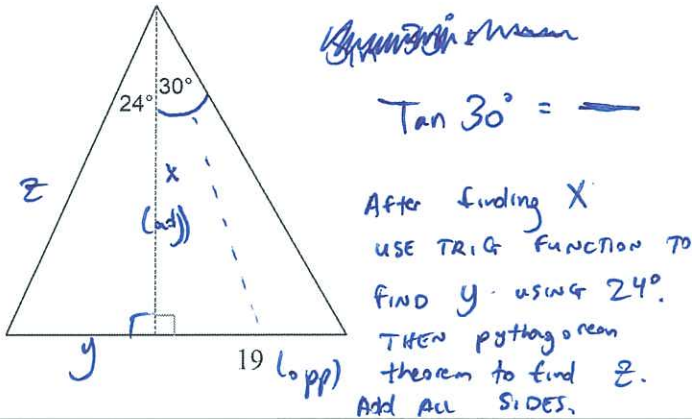 30°
24°
x
(adj)
z
y
19 (opp)
Tan 30° =
After finding X
USE TRIG FUNCTION TO
FIND y using 24°.
THEN pythagorean
theorem to find z.
Add ALL SIDES.